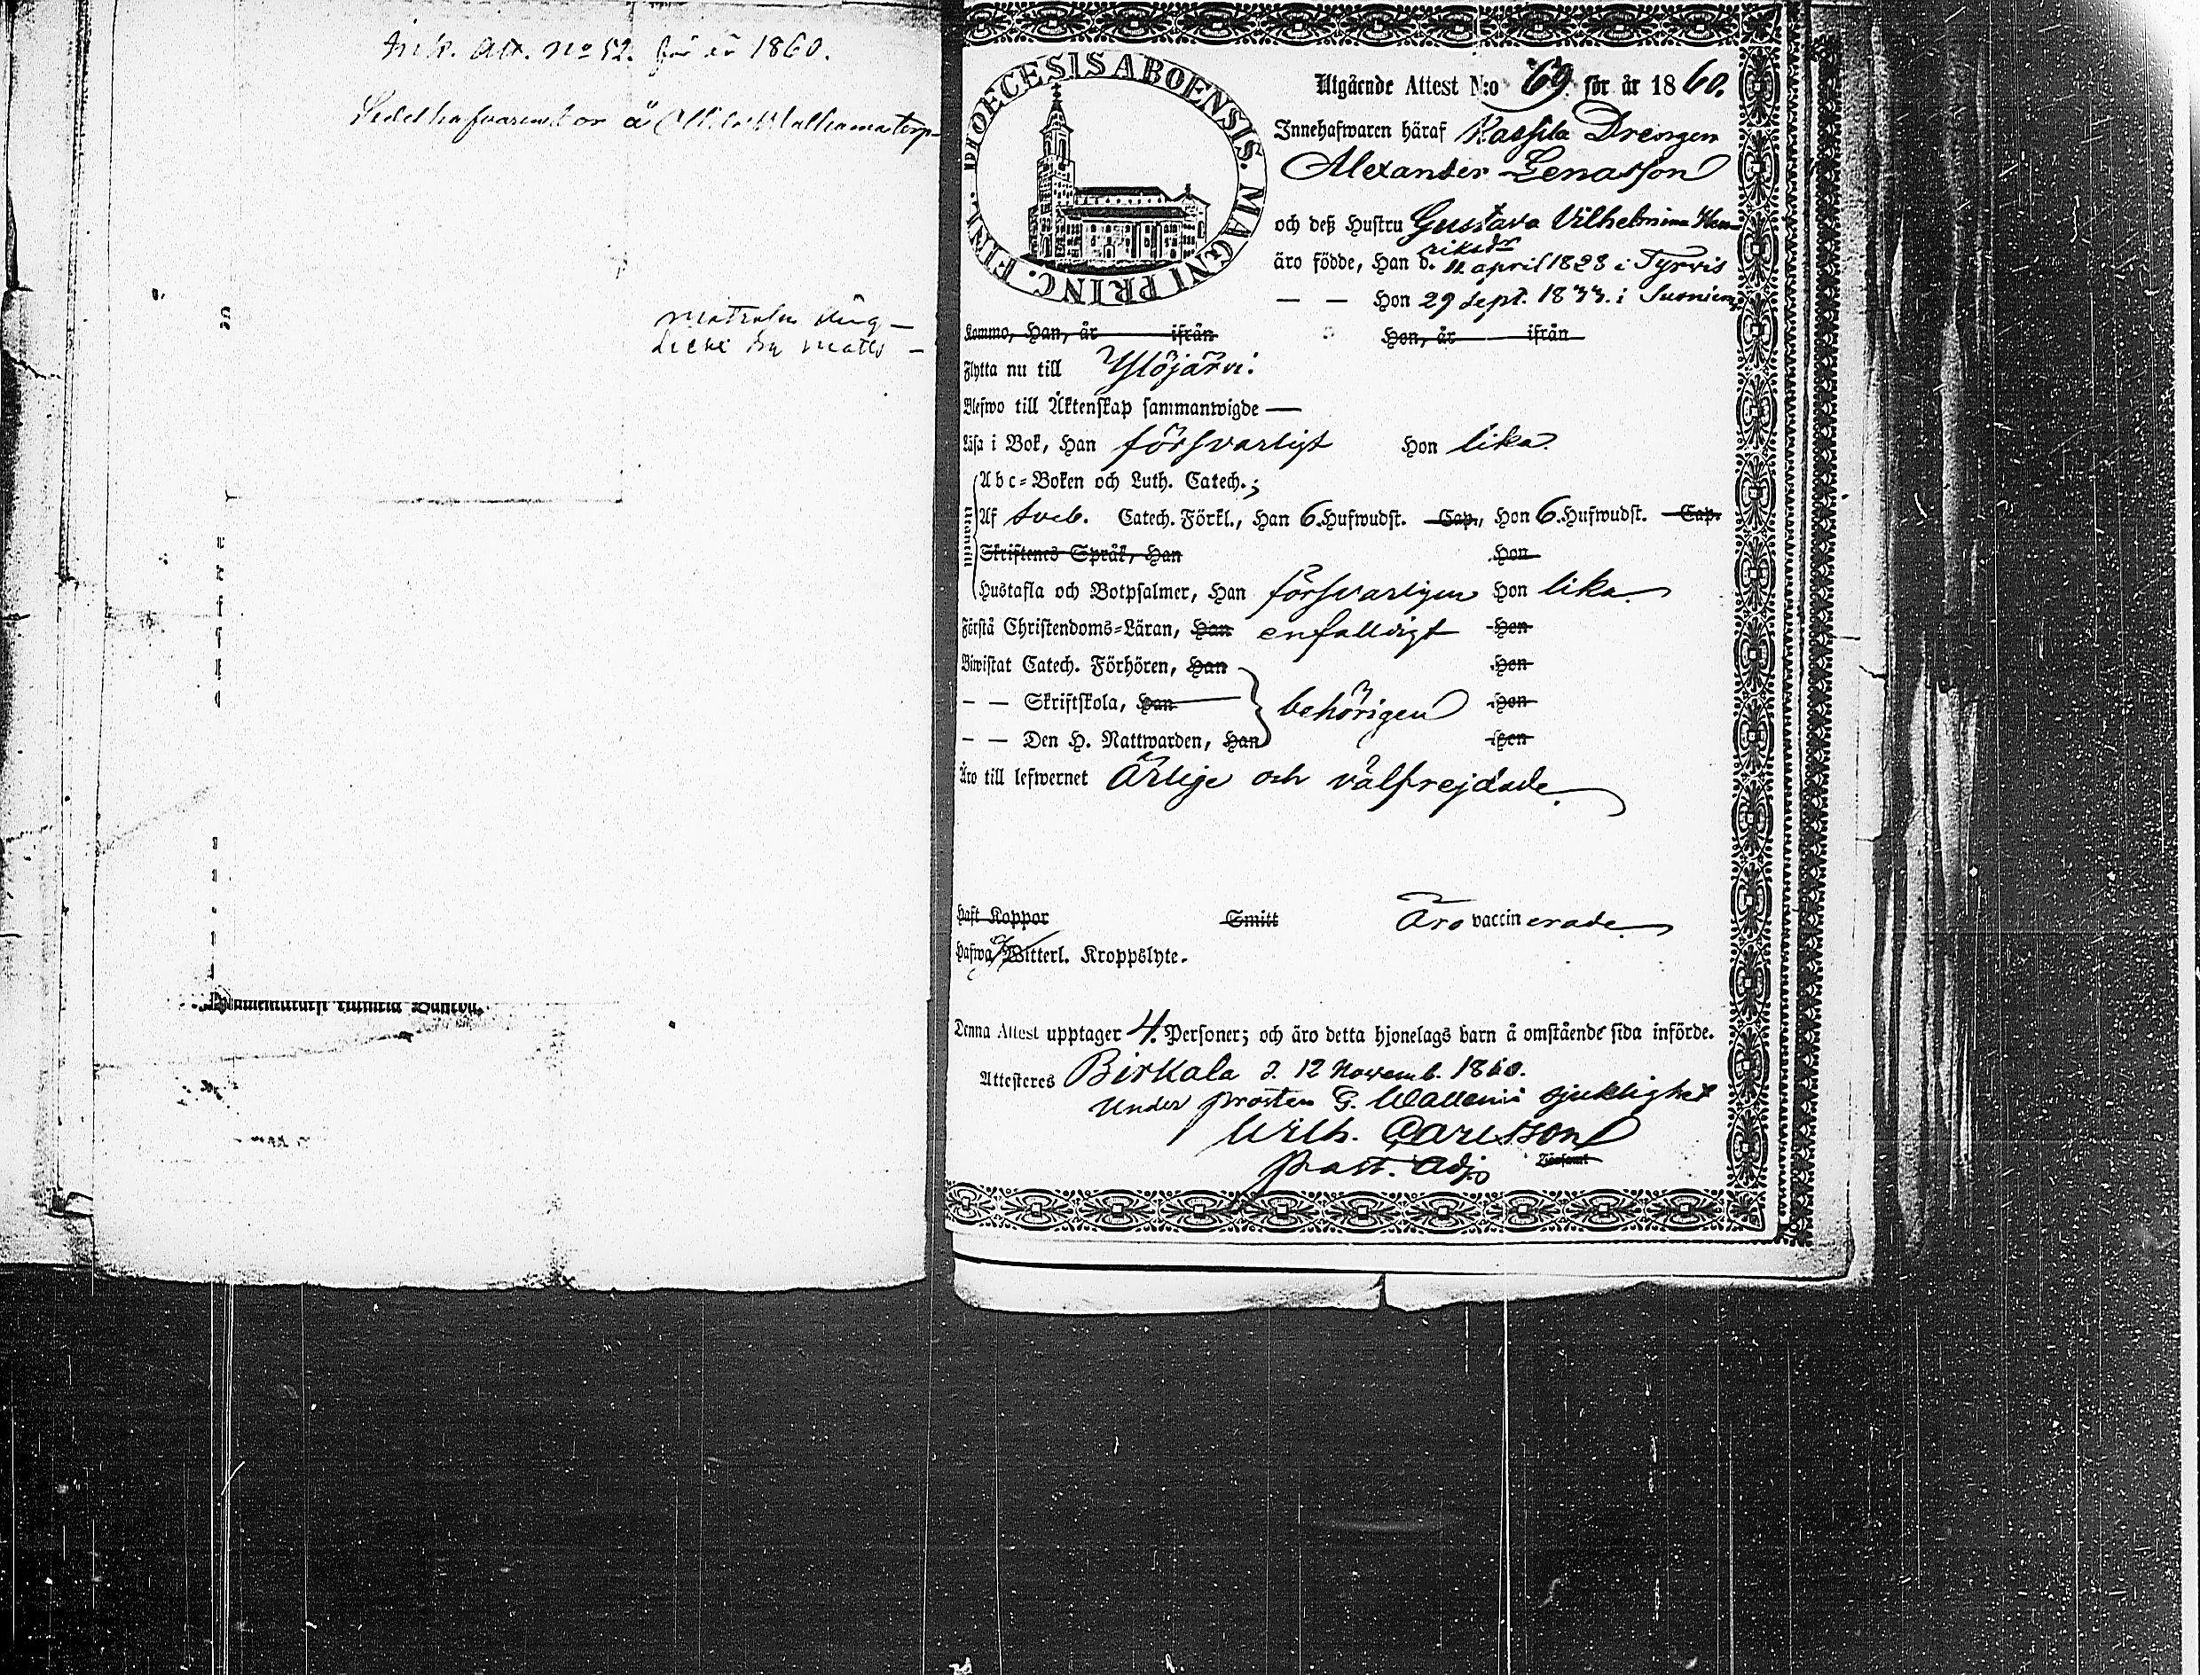 Ink. Att. No 52. för år 1860.
Sedelhafvaren bor å
DIOECESIS ABOENSIS. MAGNI PRINC. FINL.
Utgående Attest N:o 69. för år 1860.
Innehafwaren häraf Kassila Drengen
Alexander Lenasson
och deß Hustru Gustava Vilhelmina Hen-
riksdr
äro födde, Han d. 11 april 1828 i Tyrvis
— — Hon 29 sept. 1833. i Suoniemi
Kommo, Han, år ifrån Hon, år ifrån
Flytta nu till Ylöjärvi.
Blefwo till Äktenskap sammanwigde —
Läsa i Bok, Han försvarligt Hon lika
Utantill
Abc-Boken och Luth. Catech.;
Af Sveb. Catech. Förkl., Han 6. Hufwudst. Cap., Hon 6. Hufwudst. Cap.
Skriftenes Språk, Han Hon
Hustafla och Botpsalmer, Han försvarligen Hon lika
Förstå Christendoms-Läran, Han enfalldigt Hon
Biwistat Catech. Förhören, Han Hon
— — Skriftskola, Han behörigen Hon
— — Den H. Nattwarden, Han Hon
Äro till lefwernet Ärlige och välfrejdade.
Haft Koppor Smitt Äro vaccinerade
Hafwa ej Witterl. Kroppslyte.
Denna Attest upptager 4. Personer; och äro detta hjonelags barn å omstående sida införde.
Attesteres Birkala d. 12 Novemb. 1860.
Under prosten G. Wallenii sjuklighet
Wilh. Carlsson
past. adj.